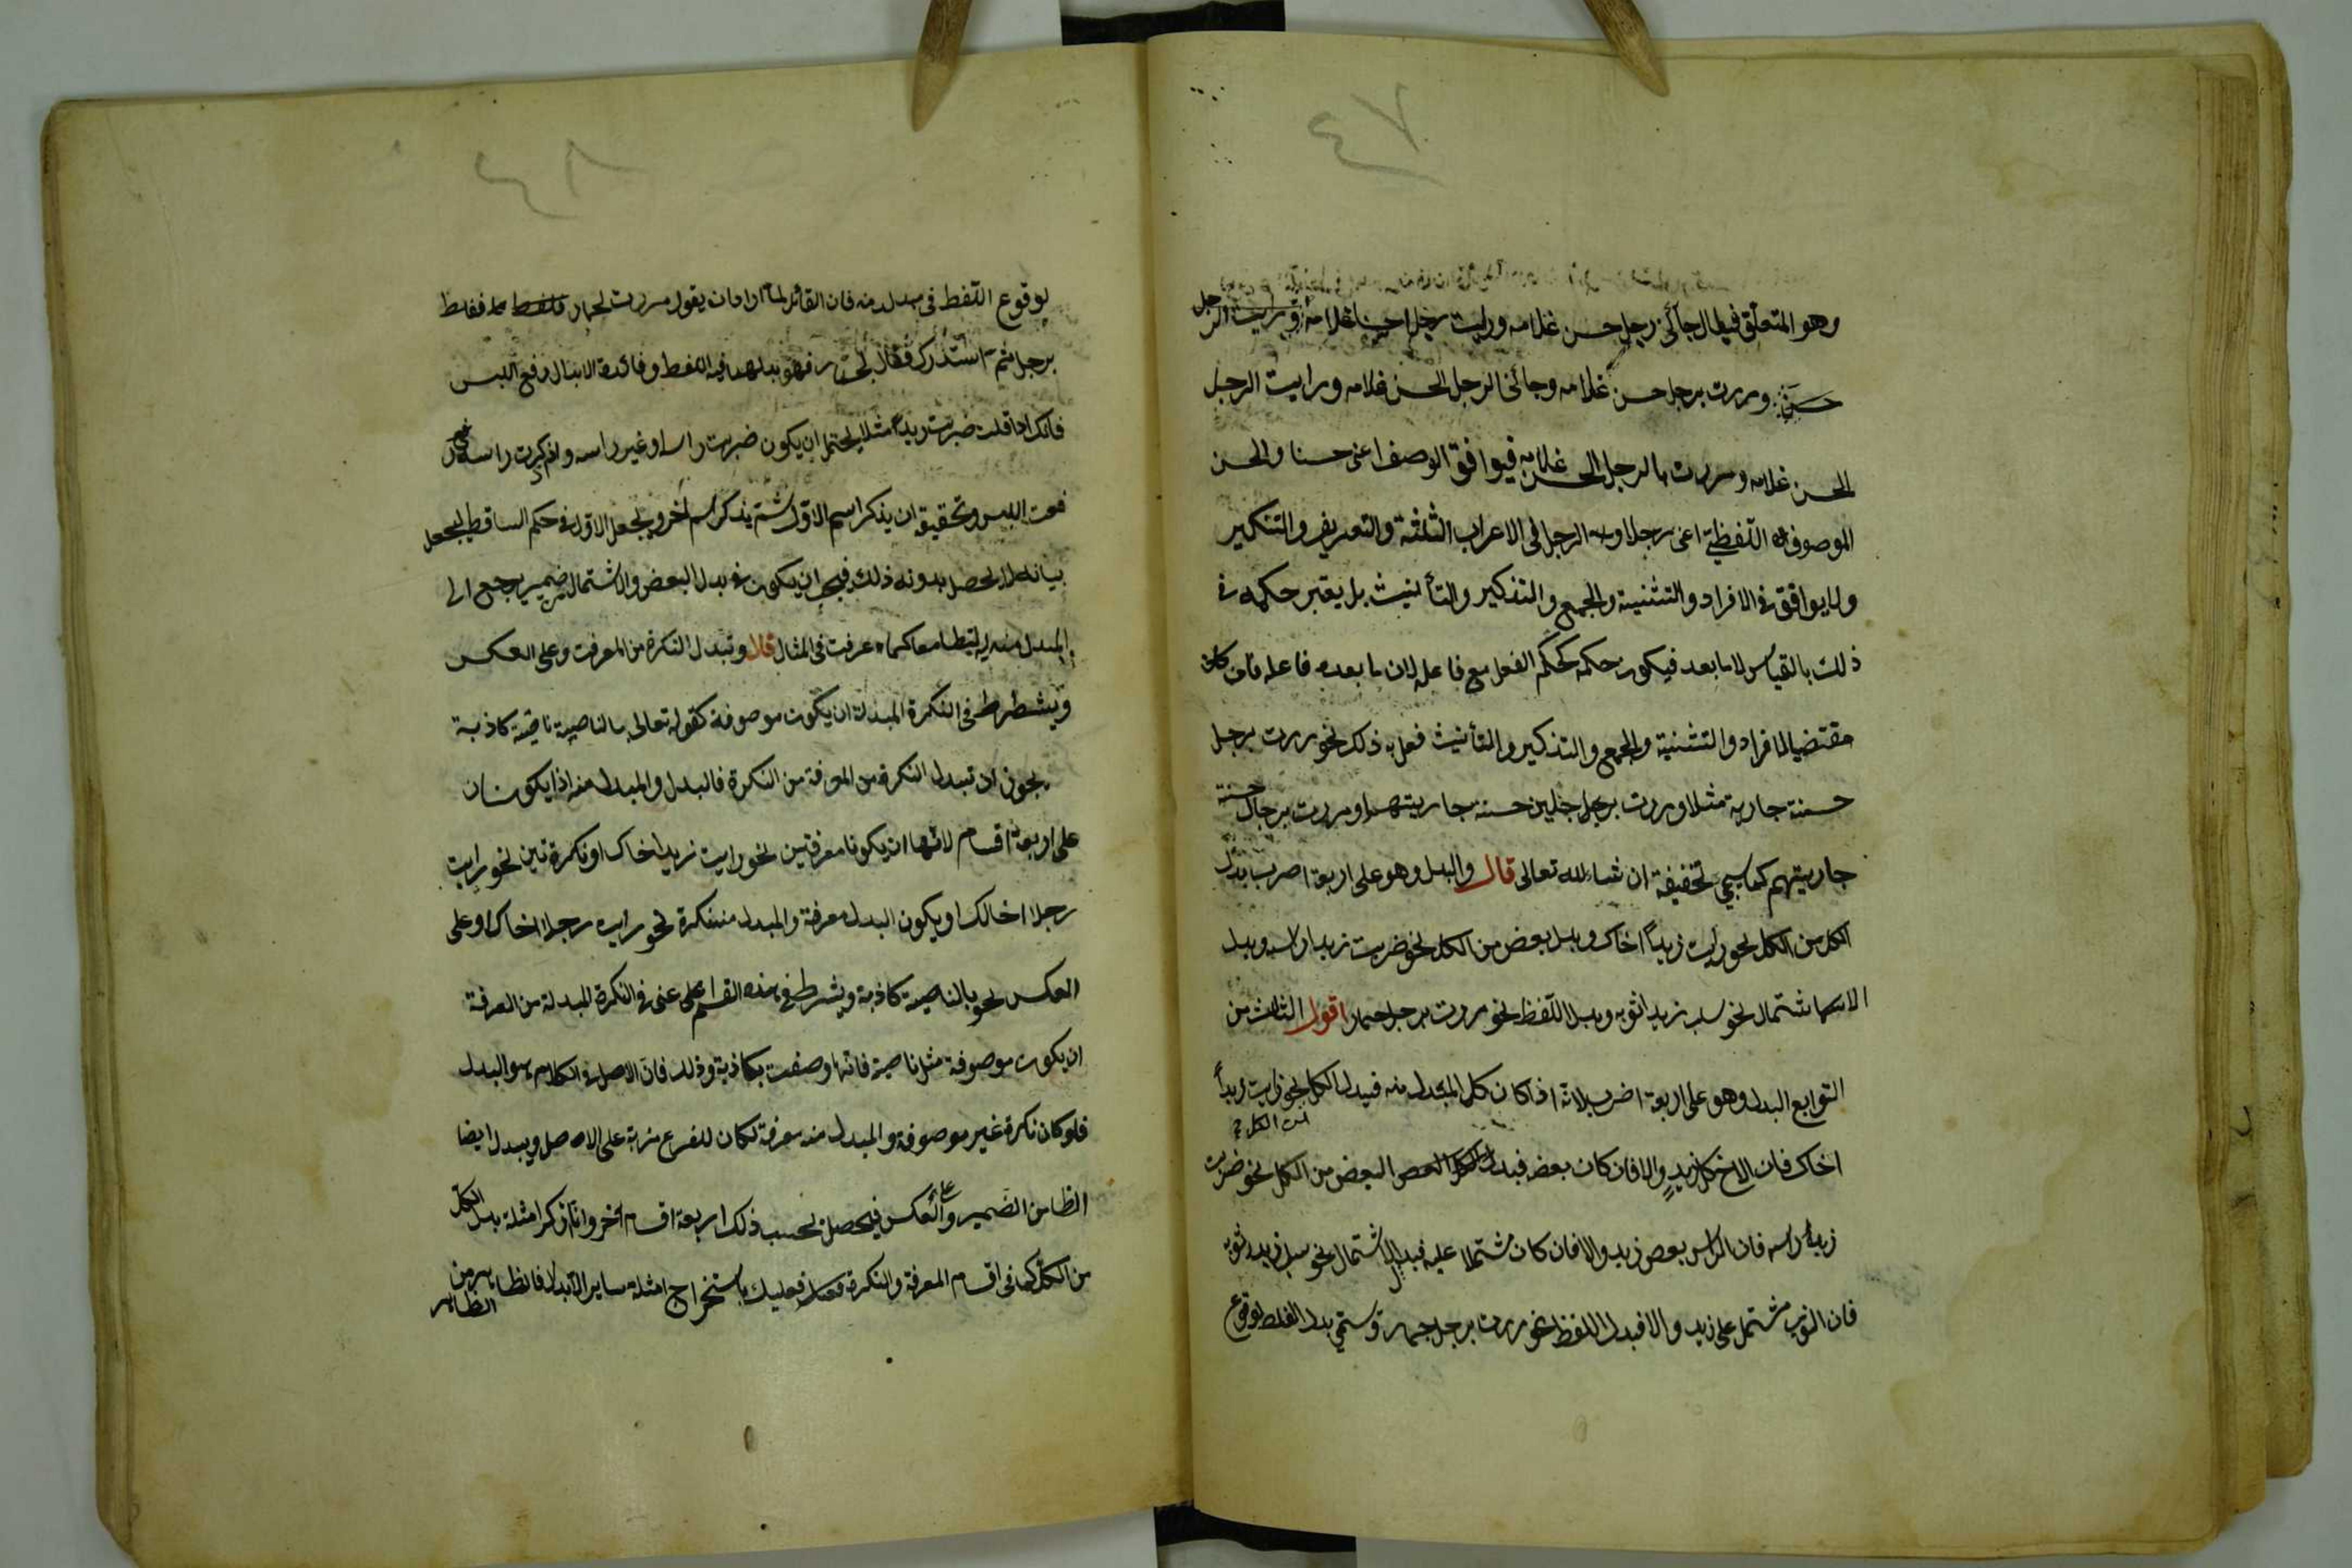 ٤٧
وهو المتعلق فيقال جائنى رجل حسن غلامه ورايت رجلا حسنا غلامه
حسن ومررت برجل حسن غلامه وجائنى الرجل الحسن غلامه ورايت الرجل
الحسن غلامه ومررت بالرجل الحسن غلامه فيوافق الوصف اعنى حسنا والحسن
الموصوف اللفظى اعنى رجلا او الرجل فى الاعراب الثلثة والتعريف والتنكير
ولا يوافق فى الافراد والتثنية والجمع والتذكير والتأنيث بل يعتبر حكمه فى
ذلك بالقياس لما بعد فيكون حكمه كحكم الفعل مع فاعله لان ما بعده فاعله فان كان
مقتضيا للافراد والتثنية والجمع والتذكير والتأنيث فعل به ذلك نحو مررت برجل
حسنة جارية مثلا ومررت برجلين حسنة جاريتهما ومررت برجال حسنة
جاريتهم كما سيجي تحقيقه ان شاء الله تعالى قال والبدل وهو على اربعة اضرب بدل
الكل من الكل نحو رأيت زيداً اخاك وبدل بعض من الكل نحو ضربت زيدا راسه وبدل
الاشتمال نحو سلب زيد ثوبه وبدل اللفظ نحو مررت برجل حمار اقول الثالث من
التوابع البدل وهو على اربعة اضرب لانه اذا كان كل المبدل منه فبدل الكل نحو رايت زيداً
من الكل
اخاك فان الاخ كل زيدٍ والا فان كان بعضه فبدل البعض من الكل نحو ضربت
زيداً راسه فان الراس بعض زيد والا فان كان مشتملا عليه فبدل الاشتمال نحو سلب زيد ثوبه
فان الثوب مشتمل على زيد والا فبدل اللفظ نحو مررت برجل حمار وسمّي بدل الغلط لوقوع
٤٨
لوقوع اللفظ فى مبدل منه فان القائل لما اراد ان يقول مررت بحمار فغلط
برجل ثم استدرك فقال بحمار فهو بدل هذا فيه اللفظ وفائدة الابدال رفع اللبس
فانك اذا قلت ضربت زيداً مثلا يحتمل ان يكون ضربت راسه او غير راسه واذا ذكرت راسه
رفعت اللبس وتحقيقه ان يذكر اسم الاول ثم يذكر اسم آخر ويجعل الاول فى حكم الساقط ليجعل
بيانه لا يحصل بدونه ذلك فيجب ان يكون فى بدل البعض والاشتمال ضمير يرجع الى
المبدل منه ليرتبطا معا كما عرفت فى المثال قال وتبدل النكرة من المعرفة وعلى العكس
ويشطرط فى النكرة المبدلة ان يكون موصوفة كقوله تعالى بالناصية ناصية كاذبة
يجوز ان تبدل النكرة من المعرفة من النكرة فالبدل والمبدل منه اذا يكونان
على اربعة اقسام لانهما ان يكونا معرفتين نحو رايت زيدا اخاك او نكرتين نحو رايت
رجلا اخا لك او يكون البدل معرفة والمبدل منه نكرة نحو رايت رجلا اخاك وعلى
العكس نحو بالناصية كاذبة ويشرط فى هذه القسم على عنى فى النكرة المبدلة من المعرفة
ان يكون موصوفة مثل ناصية فانها وصفت بكاذبة وذلك فان الاصل فى الكلام هو البدل
فلو كان نكرة غير موصوفة والمبدل منه معرفة لكان للفرع مزية على الاصل ويبدل ايضا
الظا من الضمير وعلى العكس فيحصل بحسب ذلك اربعة اقسام اخر وانا اذكر امثلة بدل الكل
من الكل كما فى اقسام المعرفة والنكرة فعليك باستخراج امثلة ساير الابدال فالظاهر من
الظاهر